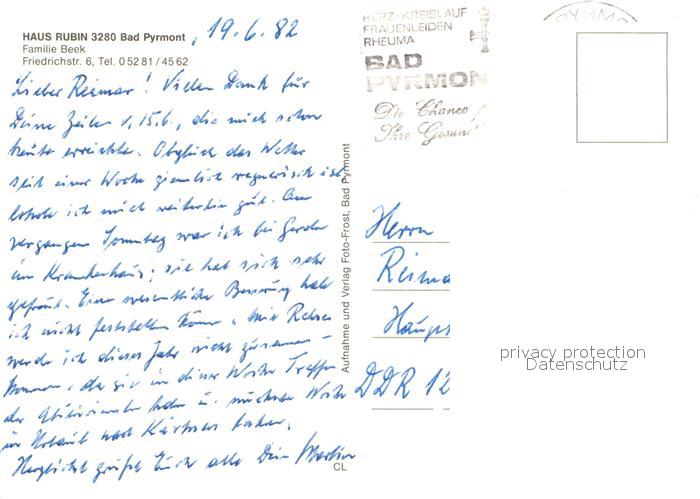 HAUS RUBIN 3280 Bad Pyrmont, 19.6.82
Familie Beek
Friedrichstr. 6, Tel. 0 52 81 / 45 62
Lieber Reimar! Vielen Dank für
Deine Zeilen v. 15.6., die mich schon
heute erreichte. Obgleich das Wetter
seit einer Woche ziemlich regnerisch ist
erhole ich mich weiterhin gut. Am
vergangen Sonntag war ich bei Gerda
im Krankenhaus; sie hat sich sehr
gefreut. Eine wesentliche Besserung habe
ich nicht feststellen können. Mit
werde ich dieses Jahr nicht zusammen-
kommen, da sie in dieser Woche Treffen
der haben u. nächste Woche
in Urlaub nach Kärnten fahren.
Herzlichst grüßt Euch alle Dein Martin
CL
Aufnahme und Verlag Foto-Frost, Bad Pyrmont
HERZ-KREISLAUF
FRAUENLEIDEN
RHEUMA
BAD
PYRMON
Die Chance f
Ihre Gesun
PYRMO
Herrn
Reima
Haupt
DDR 12
privacy protection
Datenschutz